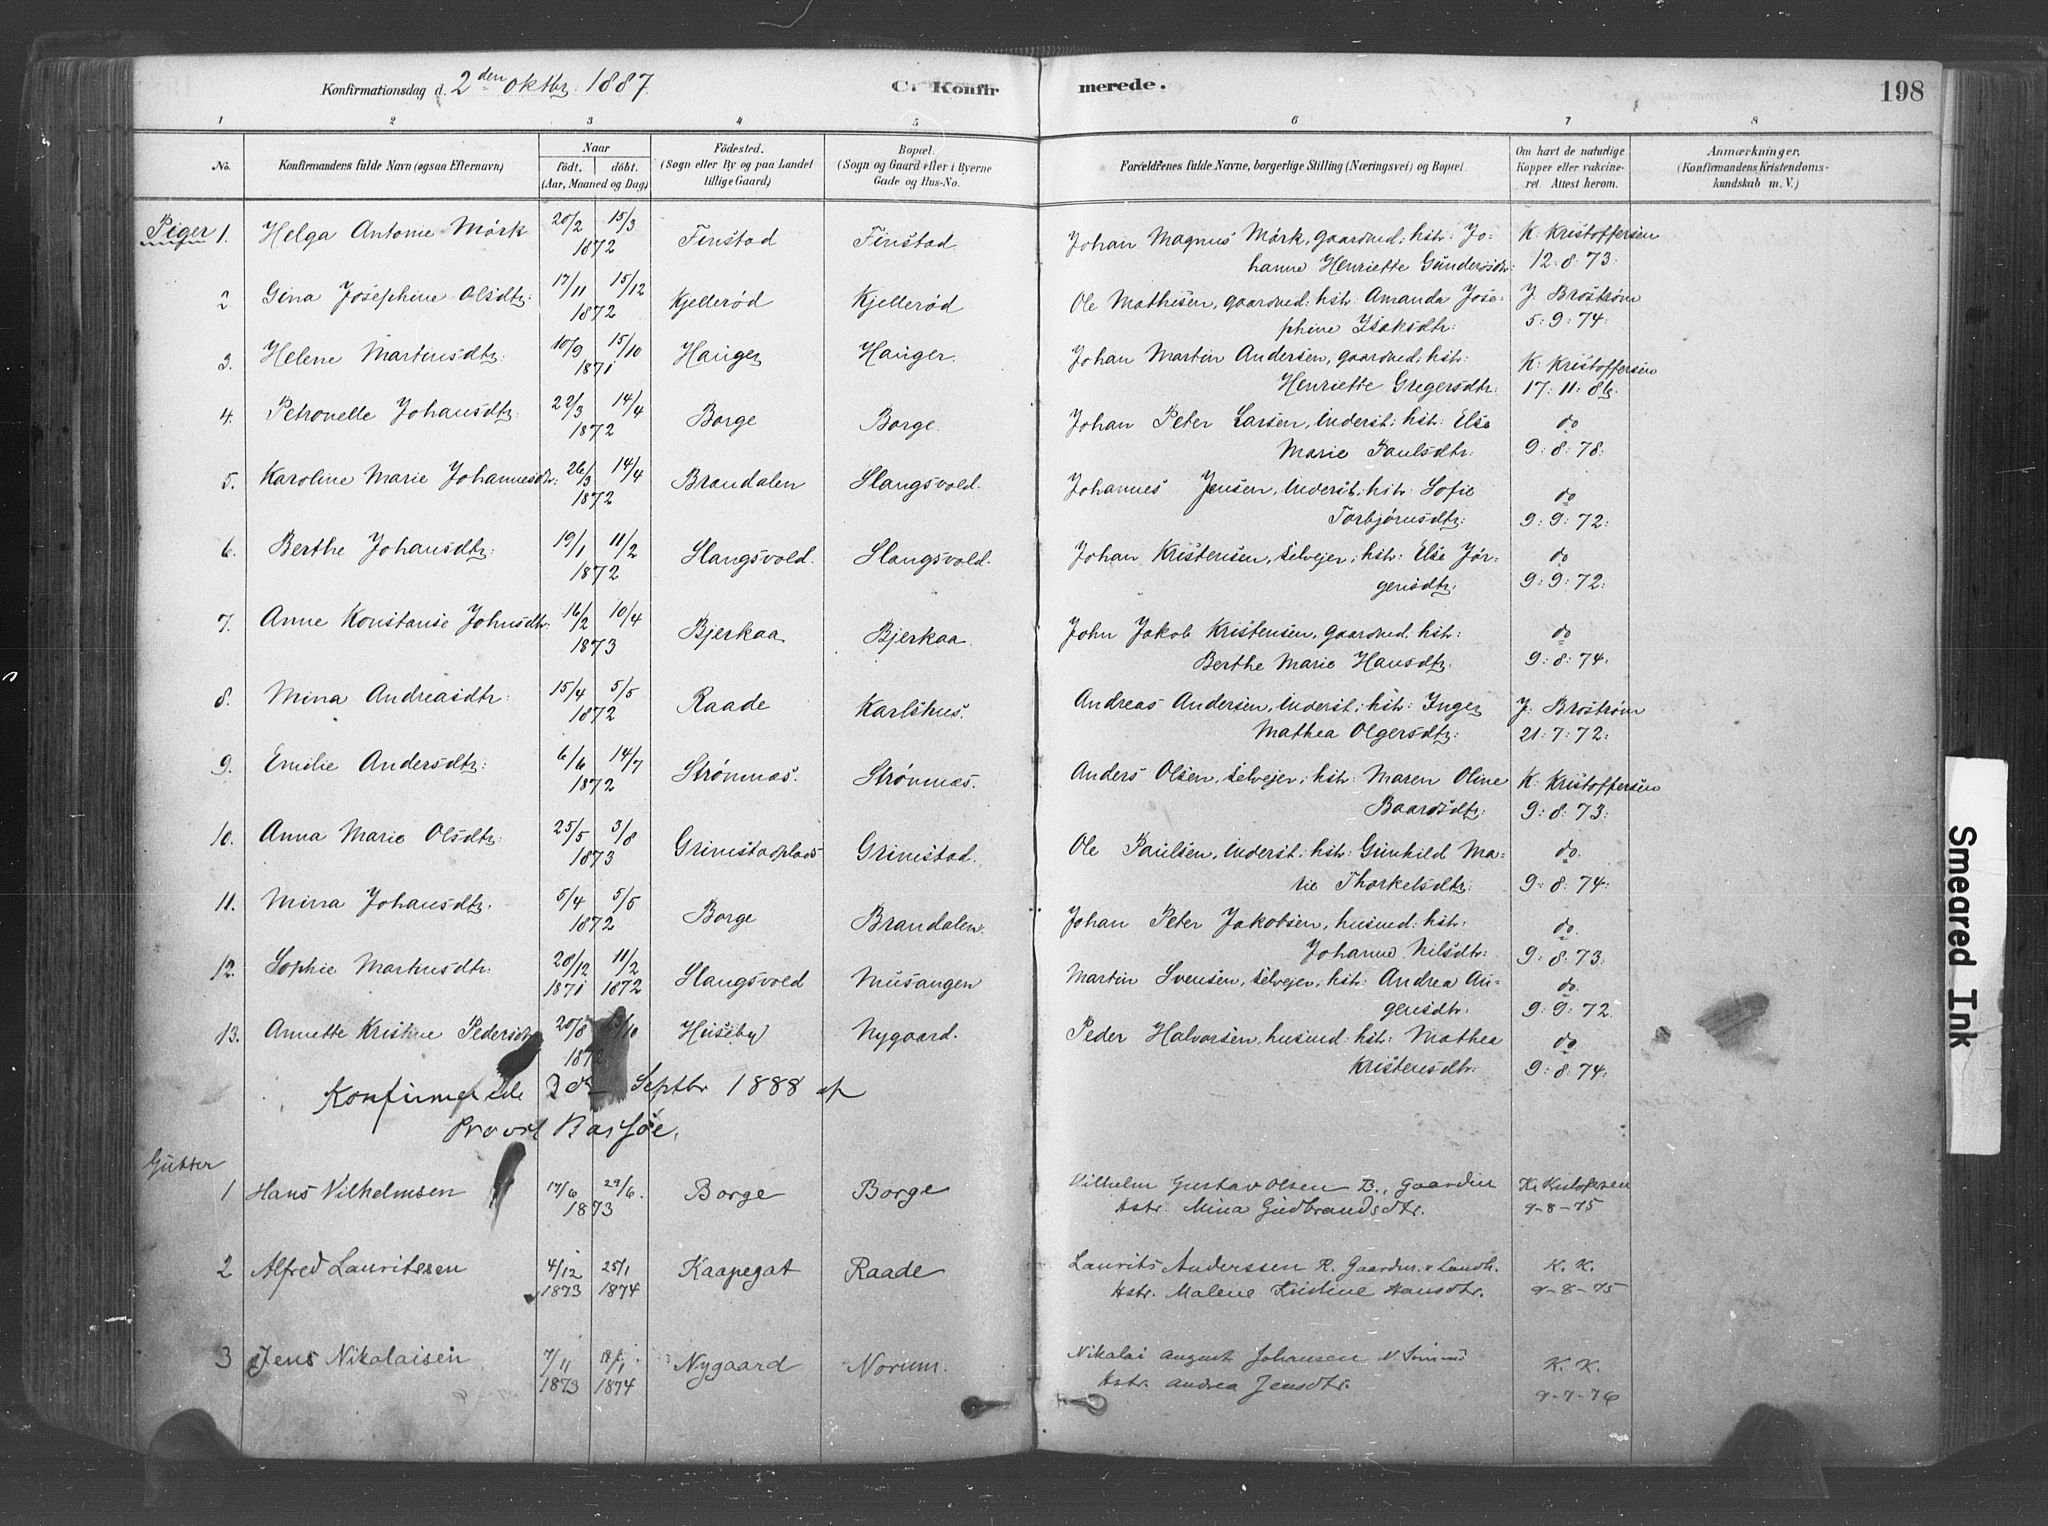 Konfirmationsdag d. 2den oktbr: 1887.
C. Konfir merede. 198
1 2 3 4 5 6 7 8
No. Konfirmandens fulde Navn (ogsaa Efternavn) Naar Födt. döbt. (Aar, Maaned og Dag) Födested. (Sogn eller By og paa Landet tillige Gaard) Bopæl. (Sogn og Gaard eller i Byerne Gade og Hus-No. Forældrenes fulde Navne, borgerlige Stilling (Næringsvei) og Bopæl. Om havt de naturlige Kopper eller vakcineret. Attest herom. Anmærkninger. (Konfirmandens Kristendomskundskab m. V.)
Piger 1. Helga Antonie Mörk 20/2 15/3 1872 Finstad Finstad. Johan Magnus Mörk, gaardmd: hstr: Jo-
hanne Henriette Gundersdtr: K. Kristoffersen 12:8:73.
2 Gina Josephine Olsdtr: 17/11 15/12 1872 Kjellerød Kjellerød Ole Mathisen, gaardmd: hstr: Amanda Jose-
phine Isaksdtr: J. Broström 5:9:74.
3. Helene Martinsdtr: 10/9 15/10 1871 Hauger Hauger. Johan Martin Andersen, gaardmd: hstr:
Henriette Gregersdtr: K. Kristoffersen 17:11:
4. Petronelle Johansdtr: 22/3 14/4 1872 Borge Borge. Johan Peter Larsen, inderst: hstr: Else
Marie Paulsdtr: do 9:8:78.
5. Karoline Marie Johannesdtr: 26/3 14/4 1872 Brandalen Slangsvold. Johannes Jensen, inderst: hstr: Sofie
Torbjörnsdtr: do 9:9:72:
6. Berthe Johansdtr: 19/1 11/2 1872 Slangsvold. Slangsvold. Johan Kristensen, selvejer: hstr: Else Jör-
gensdtr: do 9:9:72:
7. Anne Konstanse Johnsdtr: 16/2 10/4 1873 Bjerkaa Bjerkaa. John Jakob Kristensen, gaardmd: hstr:
Berthe Marie Hansdtr: do 9:8:74.
8. Mina Andreasdtr: 15/4 5/5 1872 Raade Karlshus. Andreas Andersen, inderst: hstr: Inger
Mathea Olgersdtr: J. Broström 21:7:72:
9. Emilie Andersdtr: 6/6 14/7 1872 Strömnæs. Strömnæs. Anders Olsen, selvejer: hstr: Maren Oline
Baardsdtr: K. Kristoffersen 9:8:73.
10. Anna Marie Olsdtr: 25/5 3/8 1873 Grimstadplads Grimstad. Ole Paulsen, inderst: hstr: Gunhild Ma-
rie Thorkelsdtr: do. 9:8:74:
11. Mina Johansdtr. 5/4 5/5 1872 Borge Brandalen. Johan Peter Jakobsen, husmd: hstr:
Johanne Nilsdtr: do. 9:8:73:
12. Sophie Martinsdtr: 28/12 1871 11/2 1872 Slangsvold Musangen Martin Svensen, selvejer, hstr: Andrea Au-
gensdtr: do. 9:9:72.
13. Annette Kristine Pedersdtr 20/8 Huseby Nygaard. Peder Halvorsen, husmd: hstr: Mathea
Kristensdtr: do 9:8:74:
Konfirmerede Septbr 1888 af
Provst
Gutter
1 Hans Vilhelmsen 17/6 29/6. 1873 Borge Borge Vilhelm Gustav Olsen B., Gaardm
Hstr. Mina Gudbrandsdtr. K. Kristofersen 9-8-75
2 Alfred Lauritssen 4/12 1873 25/1 1874 Kaapegat Raade Laurits Anderssen R. Gaardm.
Hstr. Malene Kristine Hansdtr. K. K. 9-8-75
3 Jens Nikolaisen 7/11 1873 18/1 1874 Nygaard Norum. Nikolai August Johansen N
Hstr. Andrea Jensdtr. K. K. 9-7-76
Smeared Ink